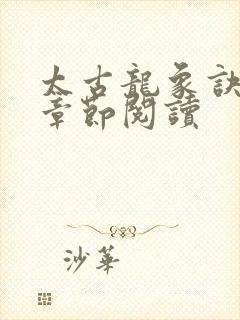 太古龍象訣
章節閱讀
沙華